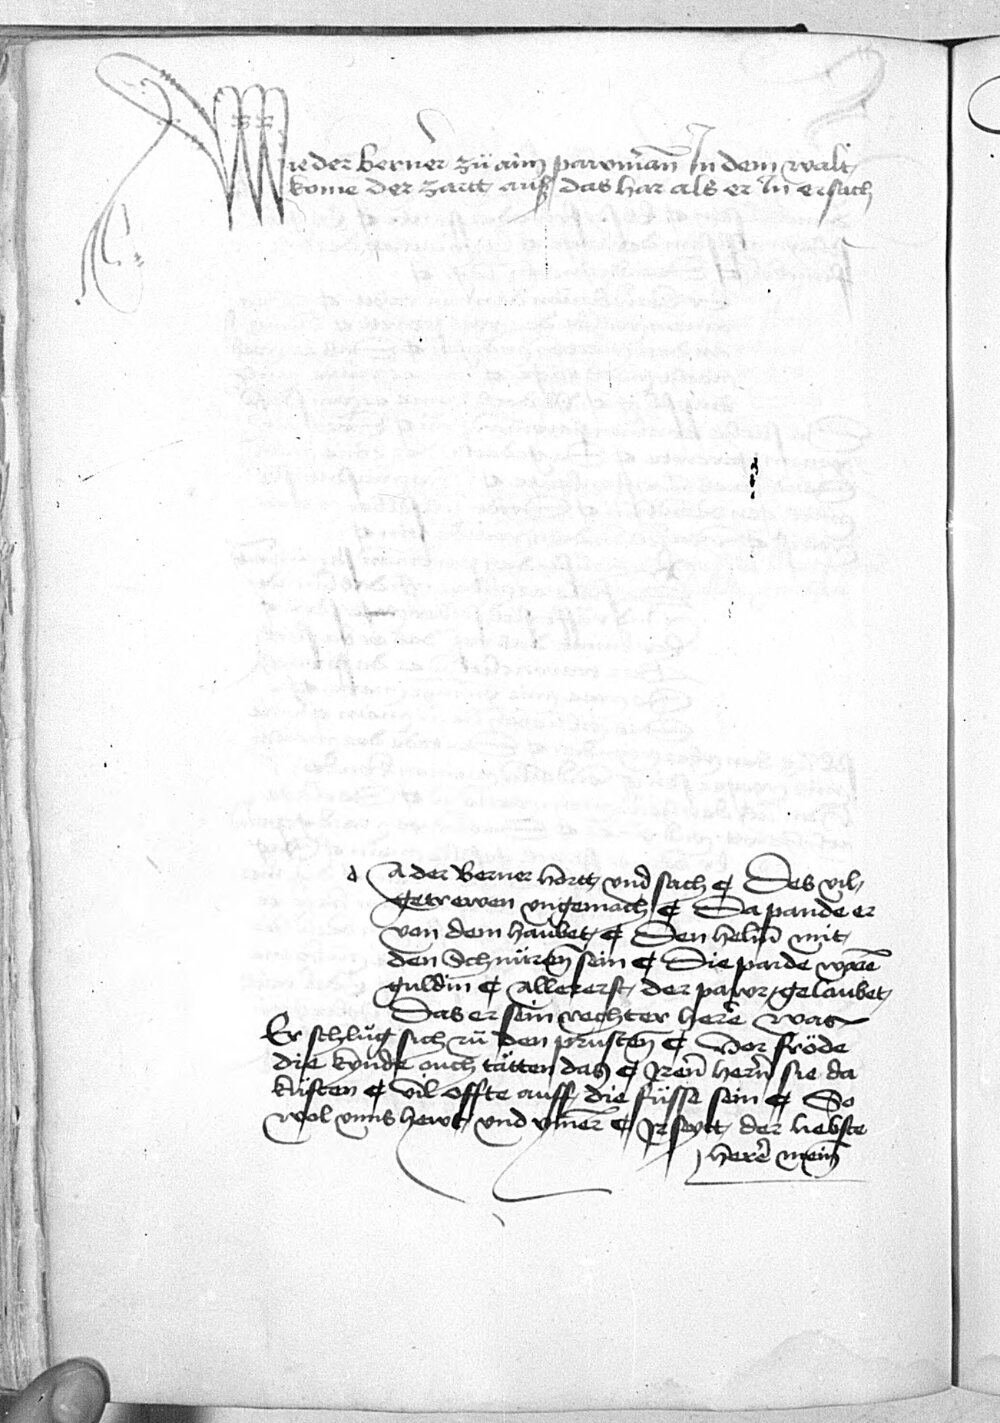 Wie der berner zü aim pawrman In dem walt
kome der zartt auf das har als er In ersach
d A der Berner hortt vnd sach ¶ Des vil
getrewen vngemach ¶ Da pande er
von dem haubet ¶ Den helm mit
den Schnüren sein ¶ Die parde waren
guldin ¶ Allererst der pawr gelaubet
Das er sein rechter here was
Er schlug sich zu den prüsten ¶ Vor fröde
die kinde ouch tätten das ¶ Iren hern sie da
küsten ¶ Vil offte auff die füsse sein ¶ So
wol vnns hewt vnd ymer ¶ Ir seytt der liebste
here mein